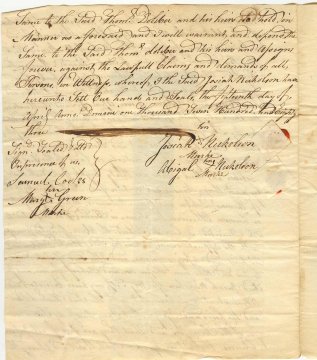 Same to the Said Thomˢ Deliber and his heirs to hold in
Manner as aforesaid and I will warrant and defend the
Same to the Said Thomˢ deliber and his heirs and Assigns
forever against the Lawfull Claims and demands of all
Persons, In Witness whereof I the Said Josiah Nickolson have
hereunto Sett our hands and Seals, the fifteenth day of
April Anno Domini one thousand Seven Hundred And Eighty
three
Sign'd Sealed & Dd
his
In presence of us
Josiah Nickolson
Marke
Samuel Coates
Abigal her Nickolson
Marke
her
Mary Green
Marke